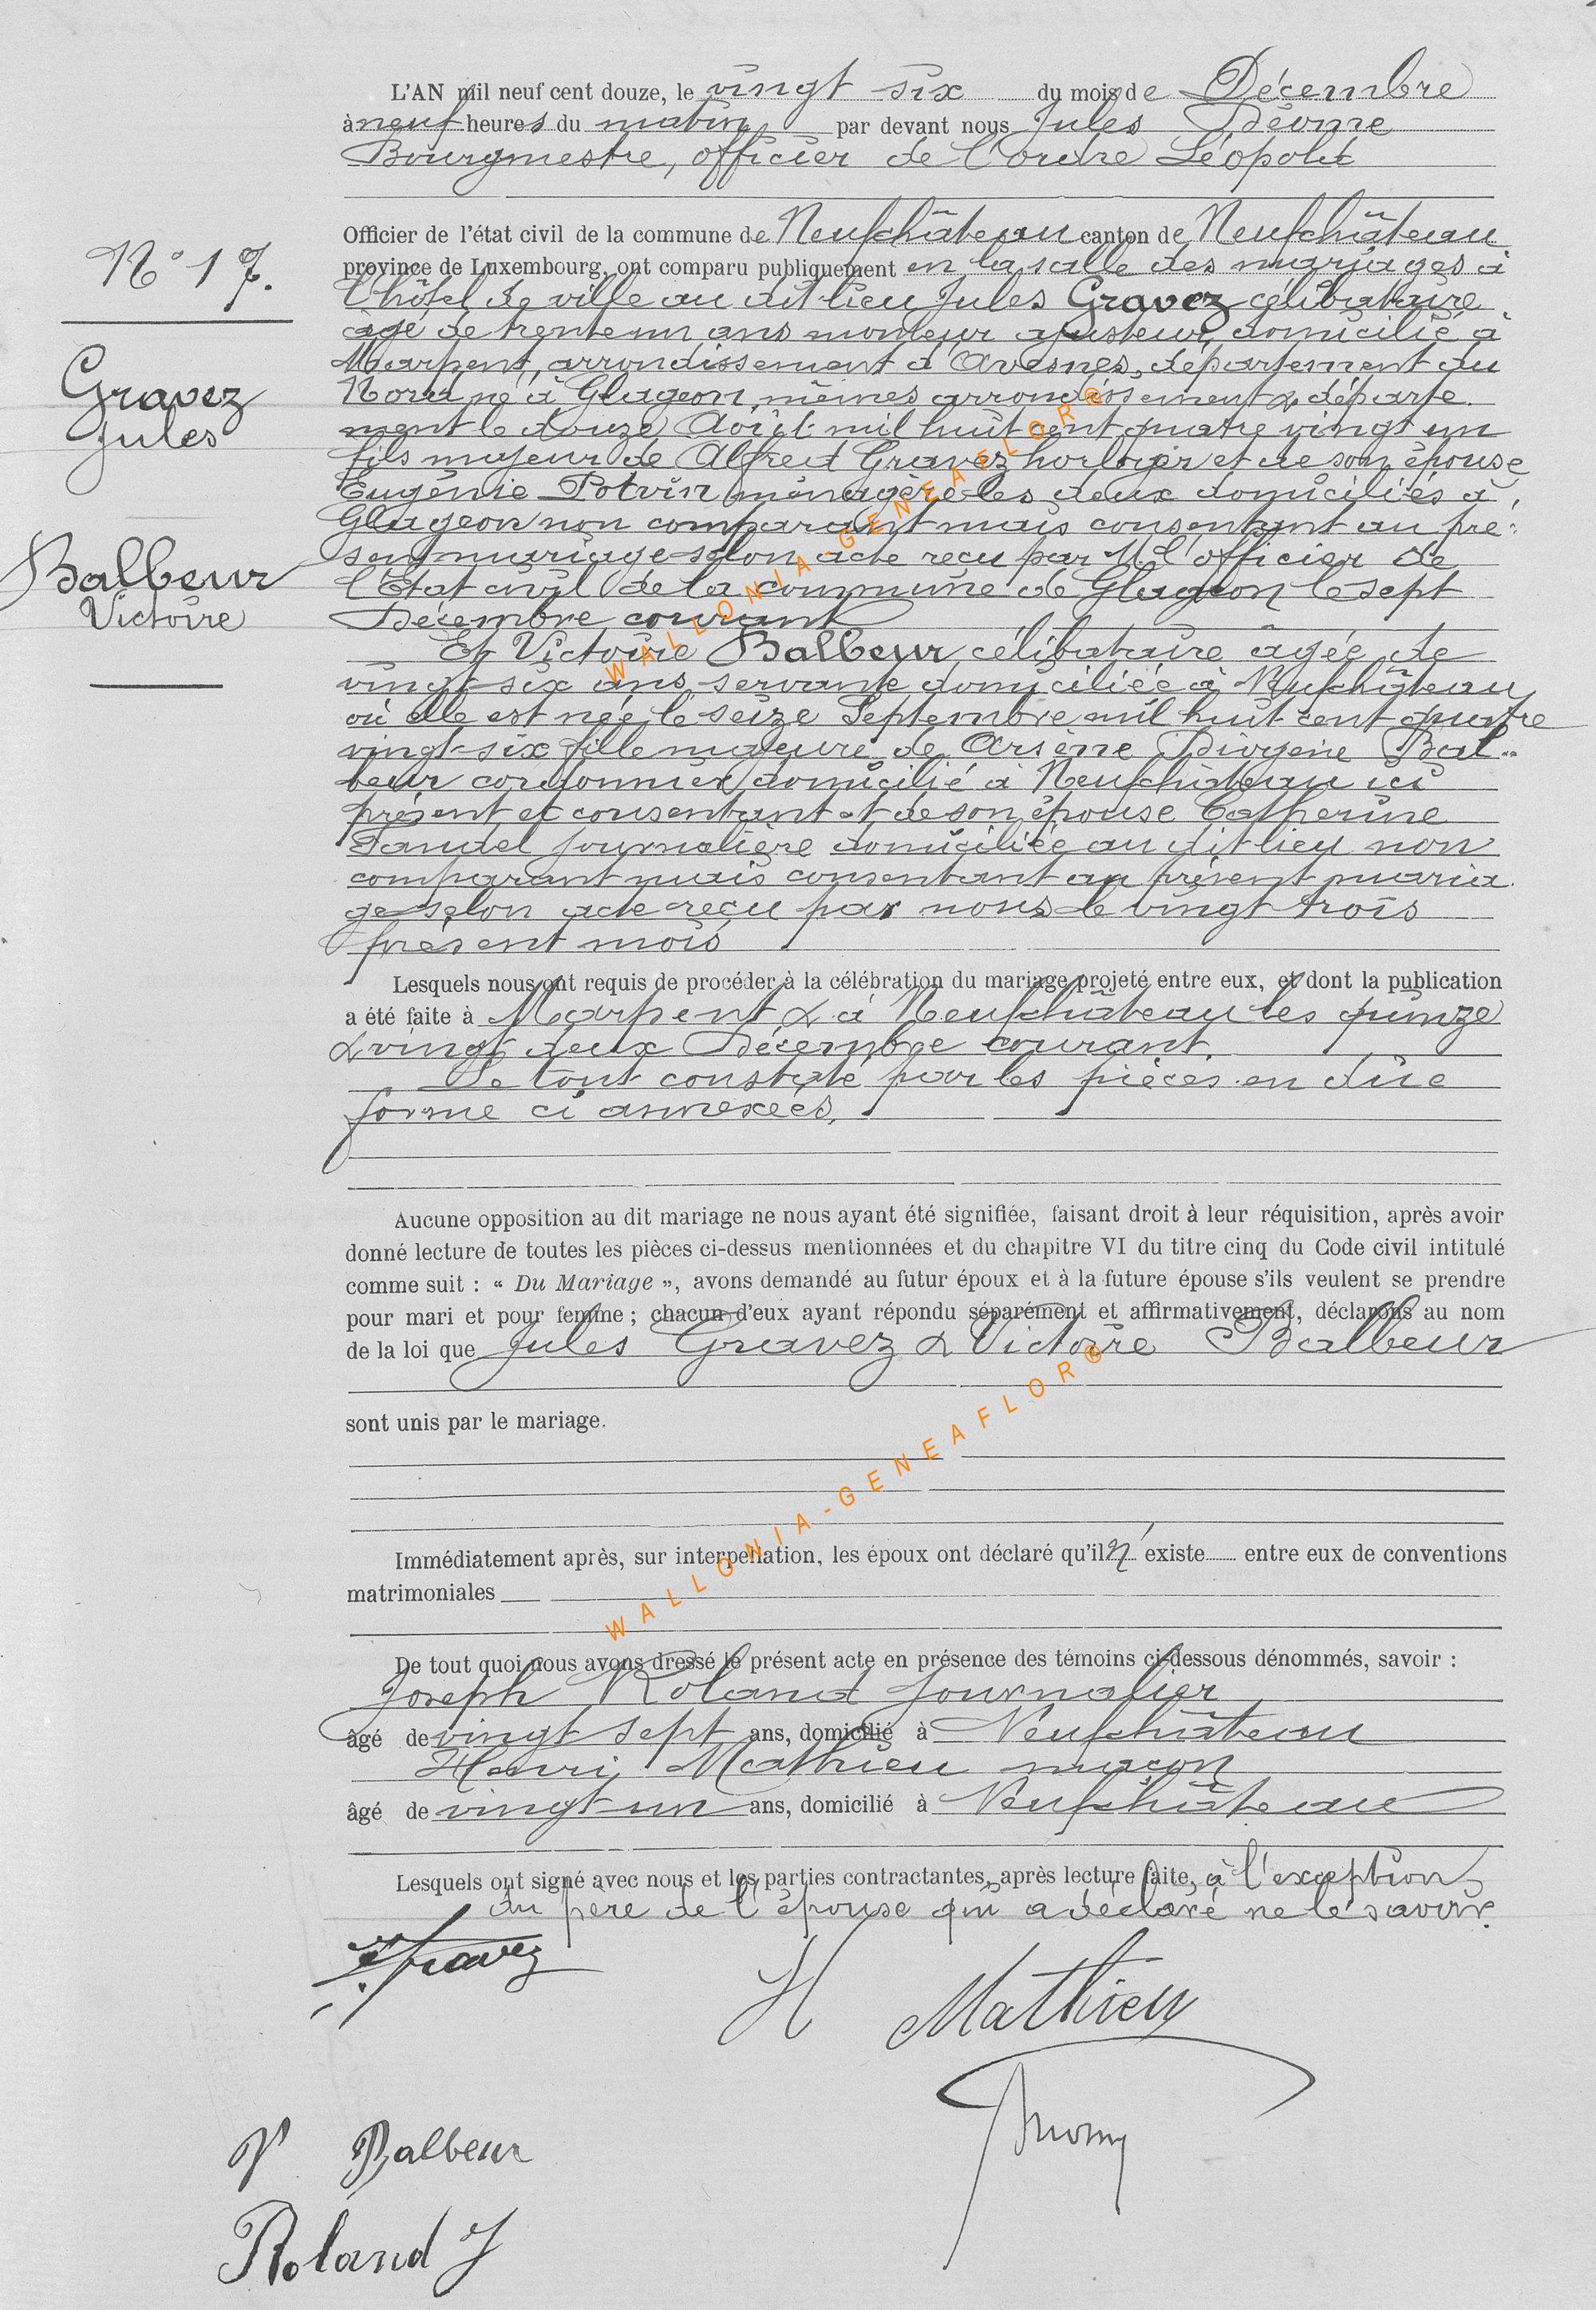 L'AN mil neuf cent douze, le vingt six du mois de Décembre
à neuf heures du matin par devant nous Jules
Bourgmestre, officier de l'ordre Léopold
Officier de l'état civil de la commune de Neufchâteau canton de Neufchâteau
N° 17.
province de Luxembourg, ont comparu publiquement en la salle des mariages à
l'hôtel de ville au dit lieu Jules Gravez célibataire
âgé de trente un ans monteur ajusteur, domicilié à
Marpent, arrondissement d'Avesnes, département du
Gravez
Jules
Nord né à Glageon, mêmes arrondissement & départe
ment le douze Août mil huit cent quatre vingt un
fils majeur de Alfred Gravez horloger et de son épouse
Eugénie Potvin ménagère les deux domiciliés à
Glageon non comparant mais consentant au pré-
sent mariage selon acte reçu par M l'officier de
Balbeur
Victoire
l'Etat civil de la commune de Glageon le sept
Décembre courant
Et Victoire Balbeur célibataire âgée de
vingt-six ans servante domiciliée à Neufchâteau
où elle est née le seize Septembre mil huit cent quatre
vingt-six fille majeure de Arsène Diogène Bal-
beur cordonnier domicilié à Neufchâteau ici
présent et consentant et de son épouse Catherine
journalière domiciliée au dit lieu non
comparant mais consentant au présent maria
ge selon acte reçu par nous le vingt trois
présent mois
Lesquels nous ont requis de procéder à la célébration du mariage projeté entre eux, et dont la publication
a été faite à Marpent & à Neufchâteau les quinze
& vingt deux Décembre courant.
Le tout constaté par les pièces en dûe
forme ci annexées.
Aucune opposition au dit mariage ne nous ayant été signifiée, faisant droit à leur réquisition, après avoir
donné lecture de toutes les pièces ci-dessus mentionnées et du chapitre VI du titre cinq du Code civil intitulé
comme suit : « Du Mariage », avons demandé au futur époux et à la future épouse s'ils veulent se prendre
pour mari et pour femme ; chacun d'eux ayant répondu séparément et affirmativement, déclarons au nom
de la loi que Jules Gravez & Victoire Balbeur
sont unis par le mariage.
Immédiatement après, sur interpellation, les époux ont déclaré qu'il n' existe entre eux de conventions
matrimoniales
De tout quoi nous avons dressé le présent acte en présence des témoins ci-dessous dénommés, savoir :
Joseph Roland journalier
âgé de vingt sept ans, domicilié à Neufchâteau
Henri Mathieu maçon
âgé de vingt-un ans, domicilié à Neufchâteau
Lesquels ont signé avec nous et les parties contractantes, après lecture faite, à l'exception
du père de l'épouse qui a déclaré ne le savoir.
J. Gravez
H Mathieu
V Balbeur
Roland J
WALLONIA-GENEAFLOR®
WALLONIA-GENEAFLOR®